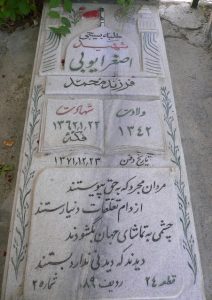 طلبه بسیجی
شهید
اصغر ایوبی
فرزند محمد
ولادت
۱۳۴۲
شهادت
۱۳۶۲،۱،۲۲
فکه
تاریخ دفن
۱۳۷۱،۱۲،۲۳
مردان مجو که به حق پیوستند
از دام تعلقات دنیا رستند
چشمی به تماشای جهان بگشودند
دیدند که دیدنی ندارد بستند
قطعه ۲۴ ردیف ۸۹ شماره ۲۵